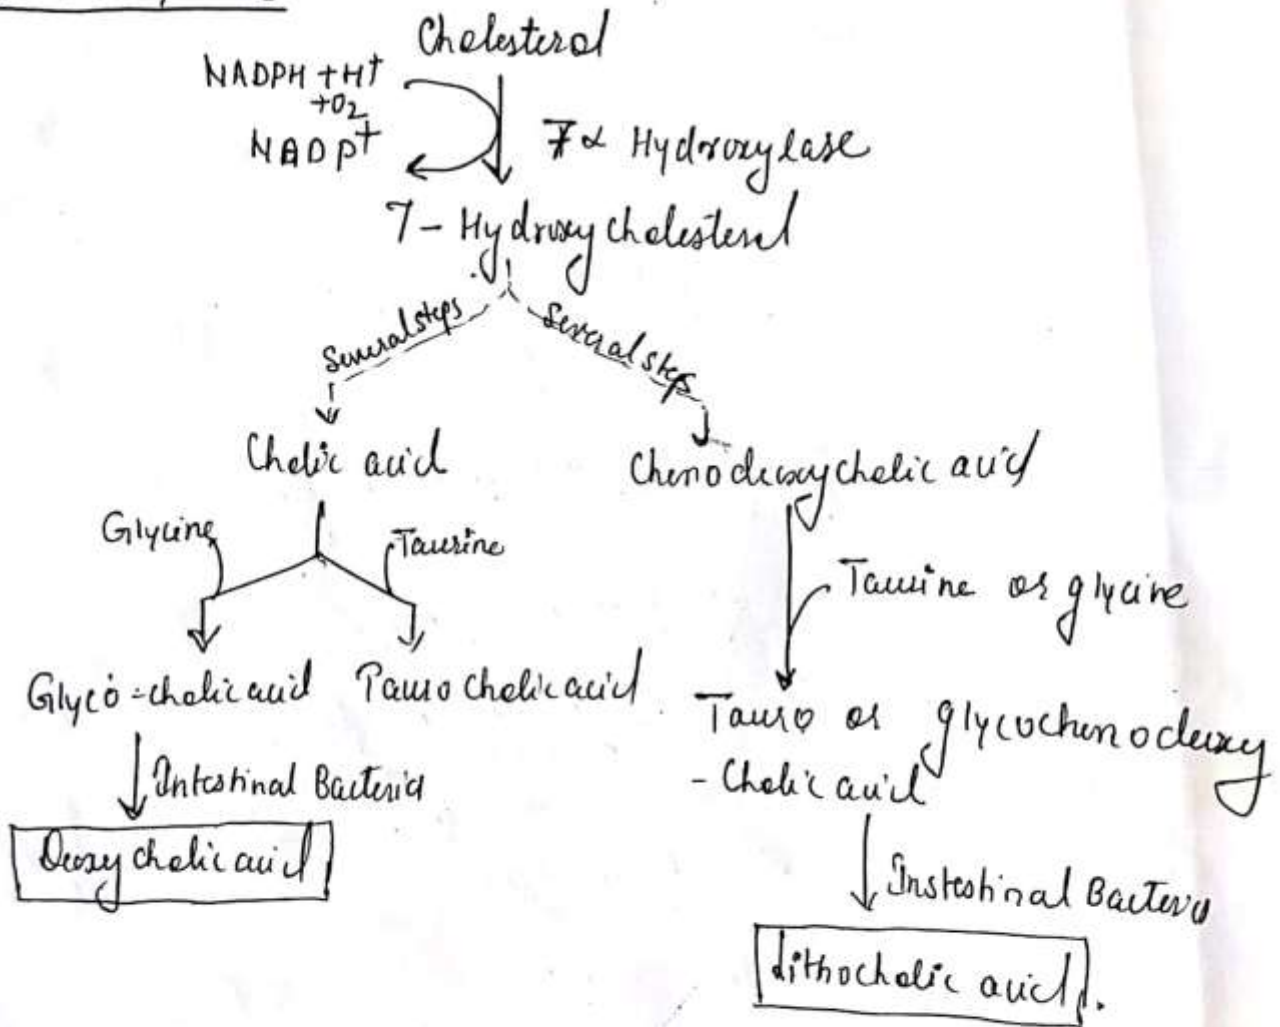 Cholesterol
NADPH + H+
+O2
NADP+
7α Hydroxylase
7 - Hydroxycholesterol
Several steps
Several steps
Cholic acid
Chenodeoxycholic acid
Glycine
Taurine
Taurine or glycine
Glyco-cholic acid
Taurocholic acid
Tauro or glycochenodeoxy
- Cholic acid
Intestinal Bacteria
Deoxycholic acid
Instestinal Bacteria
Lithocholic acid.